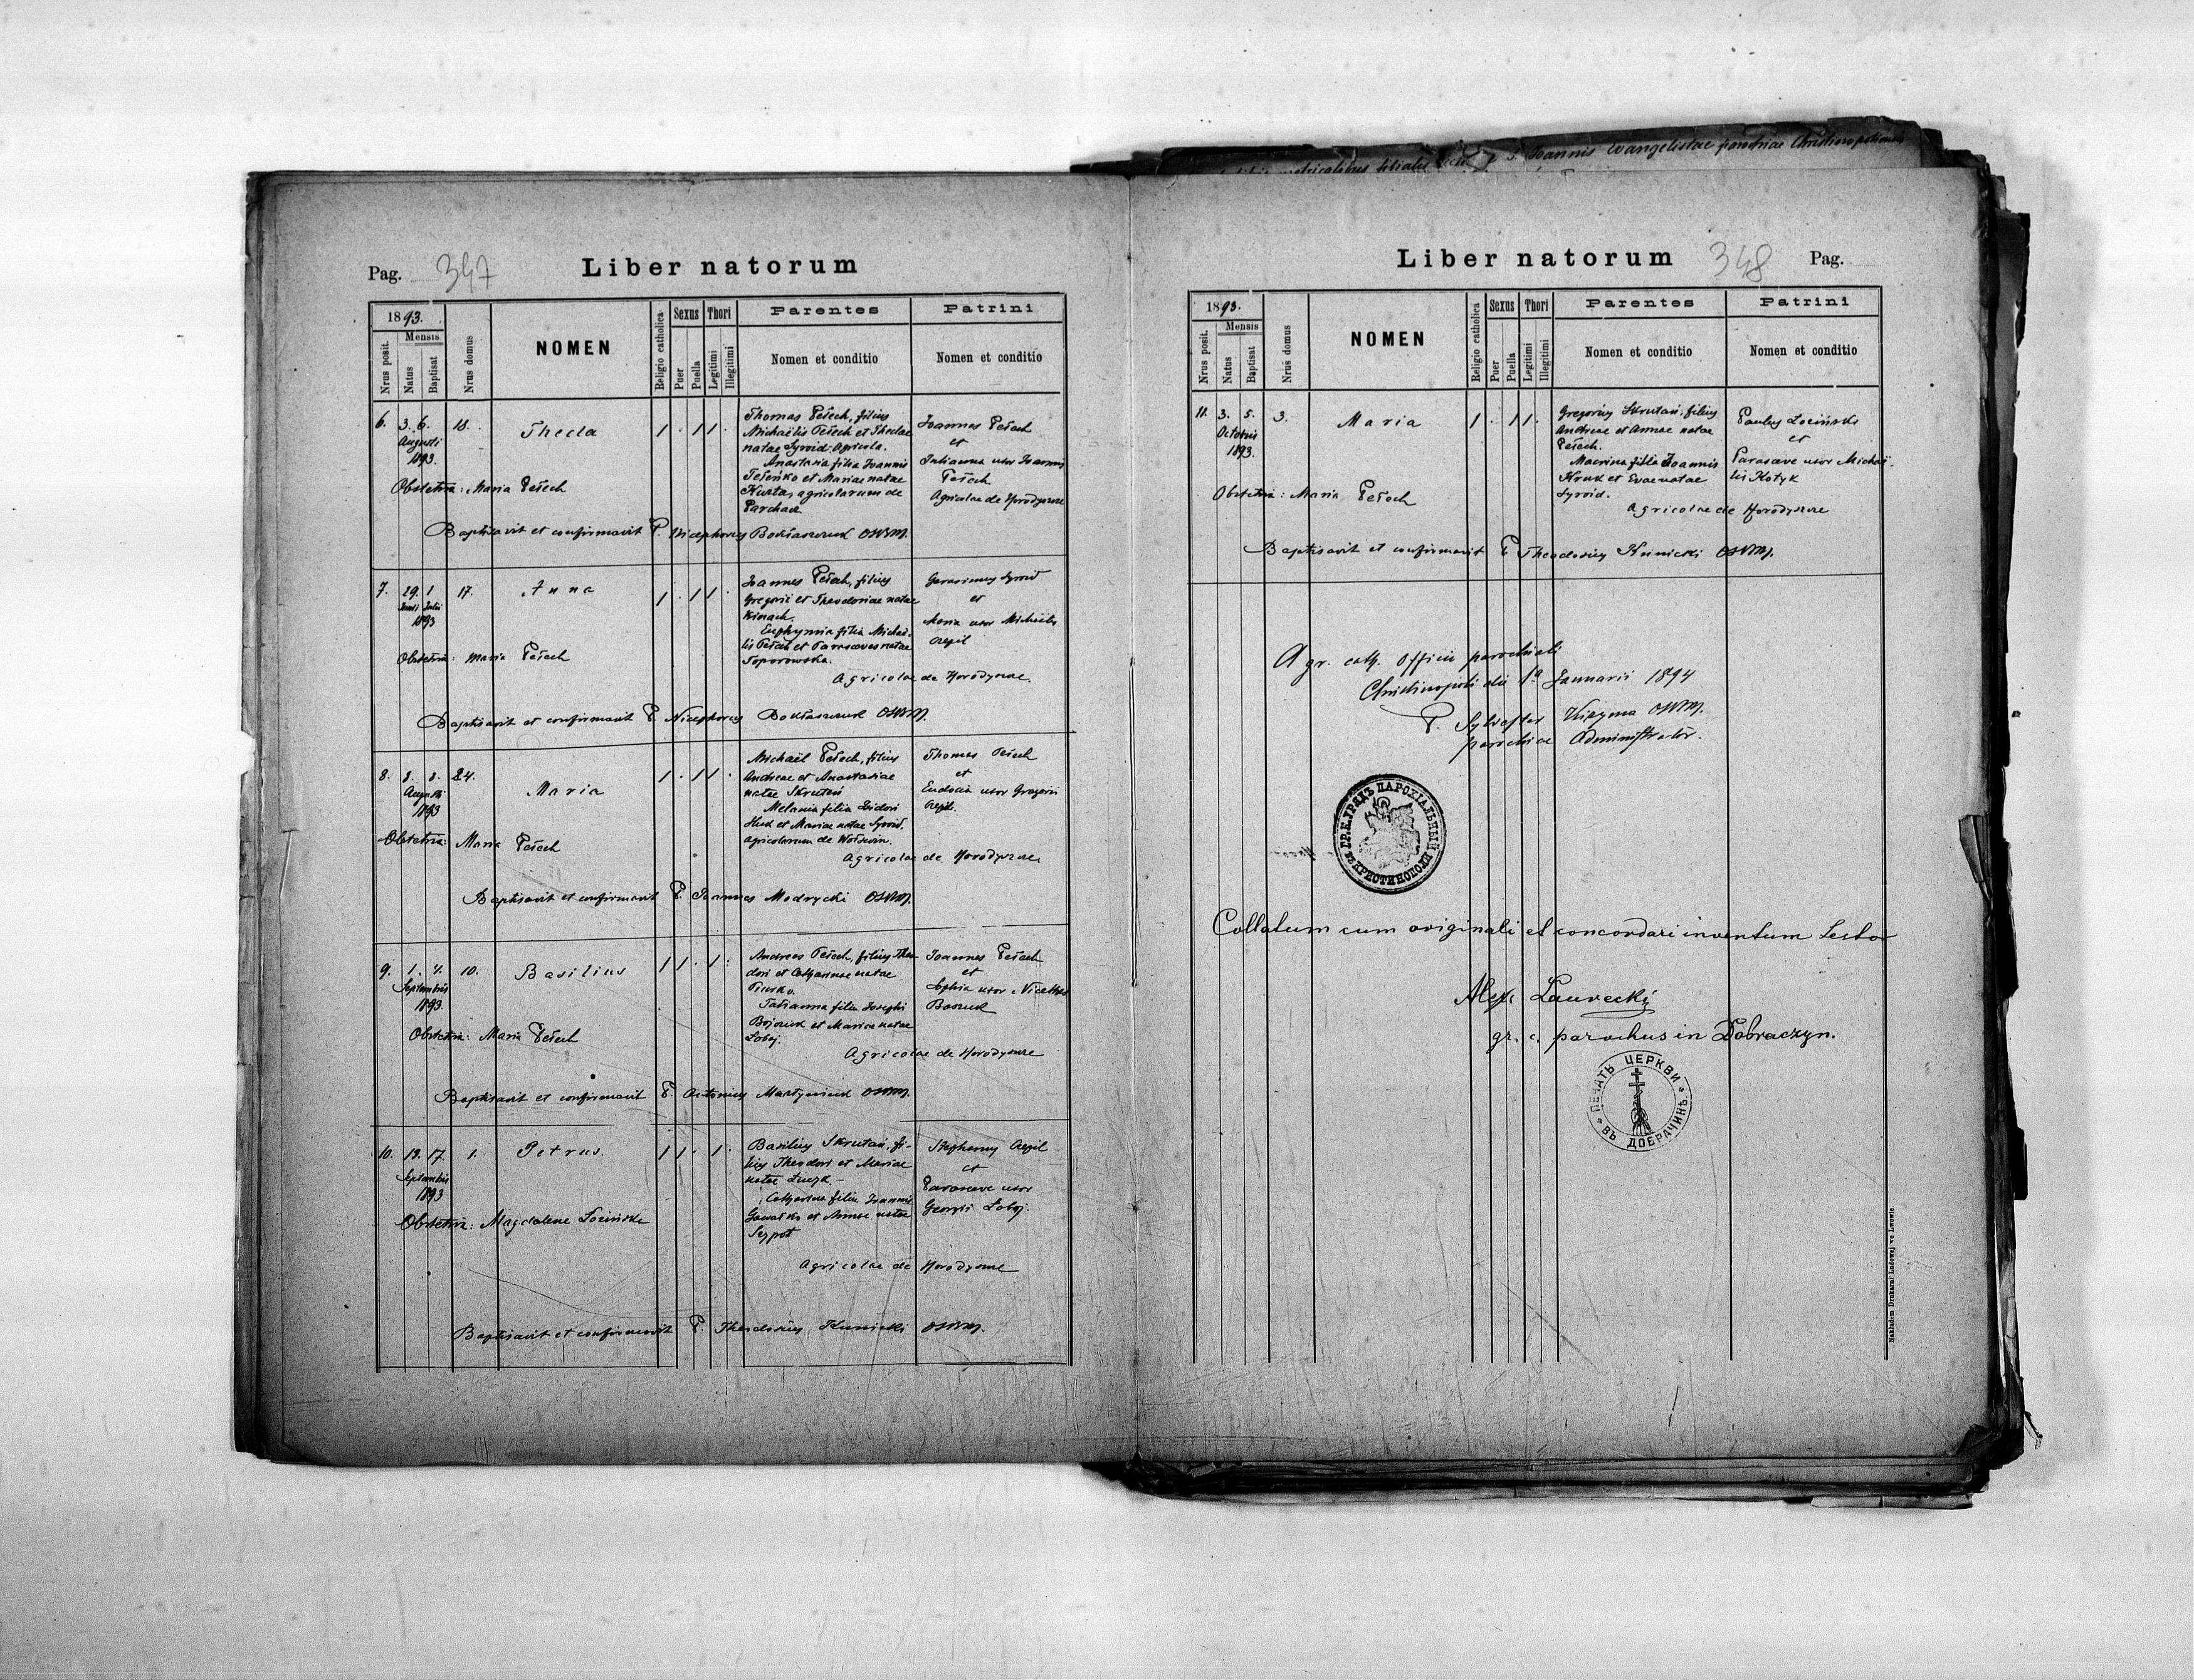 S. Joannis Evangelistae
Pag. 347
Liber natorum
1893.
Mensis
Nrus posit.
Natus
Baptisat
Nrus domus
NOMEN
Religio catholica
Sexus
Puer
Puella
Thori
Legitimi
Illegitimi
Parentes
Nomen et conditio
Patrini
Nomen et conditio
6. 3. 6. 18. Thecla 1 . 1 1 .
Augusti
1893.
Thomas Pełech, filius
Michaëlis Pełech et Theclae
natae Syroid. Agricola.
Anastasia filia Joannis
et Mariae natae
agricolarum de
Parchacz
Joannes Pełech
et
Julianna uxor Joannis
Pełech
Agricolae de Horodyszcze
Obstetrix: Maria Pełech
Baptisavit et confirmavit P. Nicephorus OSBM.
7. 29. 1 17. Anna 1 . 1 1 .
Junii Julii
1893
Joannes Pełech, filius
Gregorii et Theodoriae natae
Kinach.
Euphymia filia Michaë-
lis Pełech et Parascevae natae
Toporowska.
Gerasimus Syroid
et
Maria uxor Michaëlis
Obstetrix: Maria Pełech
Agricolae de Horodyszcze.
Baptisavit et confirmavit P. Nicephorus OSBM.
8. 8. 8. 24. Maria 1 . 1 1 .
Augusti
1893
Michaël Pełech, filius
Andreae et Anastasiae
natae Skrutań
Melania filia Isidori
et Mariae natae Syroid,
agricolarum de Wołświn.
Thomas Pełech
et
Eudocia uxor Gregorii
Obstetrix: Maria Pełech
Agricolae de Horodyszcze
Baptisavit et confirmavit P. Joannes Modrycki OSBM.
9. 1. 4. 10. Basilius 1 1 . 1 .
Septembris
1893.
Andreas Pełech, filius Theo-
dori et Catharinae natae
Tatianna filia Josephi
et Mariae natae
Łoboj.
Joannes Pełech
et
Sophia uxor Nicetae
Obstetrix: Maria Pełech
Agricolae de Horodyszcze
Baptisavit et confirmavit P. Antonius Martyniuk OSBM.
10. 13. 17. 1. Petrus. 1 1 . 1 .
Septembris
1893
Basilius Skrutań, fi-
lius Theodori et Mariae
natae
Catharina filia Joannis
et Annae natae
Stephanus
et
Parasceve uxor
Georgii Łoboj.
Obstetrix: Magdalena Łozińska
Agricolae de Horodyszcze
Baptisavit et confirmavit P. Theodosius Kunicki OSBM.
Liber natorum
348 Pag.
1893.
Mensis
Nrus posit.
Natus
Baptisat
Nrus domus
NOMEN
Religio catholica
Sexus
Puer
Puella
Thori
Legitimi
Illegitimi
Parentes
Nomen et conditio
Patrini
Nomen et conditio
11. 3. 5. 3. Maria 1 . 1 1 .
Octobris
1893.
Gregorius Skrutań, filius
Andreae et Annae natae
Pełech.
Macrina filia Joannis
Kruk et Evae natae
Syroid.
Paulus Łoziński
et
Parasceve uxor Michaë-
lis Kotyk
Obstetrix: Maria Pełech
Agricolae de Horodyszcze
Baptisavit et confirmavit P. Theodosius Kunicki OSBM.
A gr. cath. Officii parochiali
Christinopoli die 1a Januarii 1894
P. Sylvester Kizyma OSBM.
parochiae Administrator.
ГР. К. УРЯДЪ ПАРОХІАЛЬНЫЙ
въ КРИСТИНОПОЛИ
Collatum cum originali et concordari inventum testor
Alex. Laurecki
gr. c. parochus in Dobraczyn.
ПЕЧАТЬ ЦЕРКВИ
ВЪ ДОБРАЧИНѢ
Nakładem Drukarni Ludowej we Lwowie